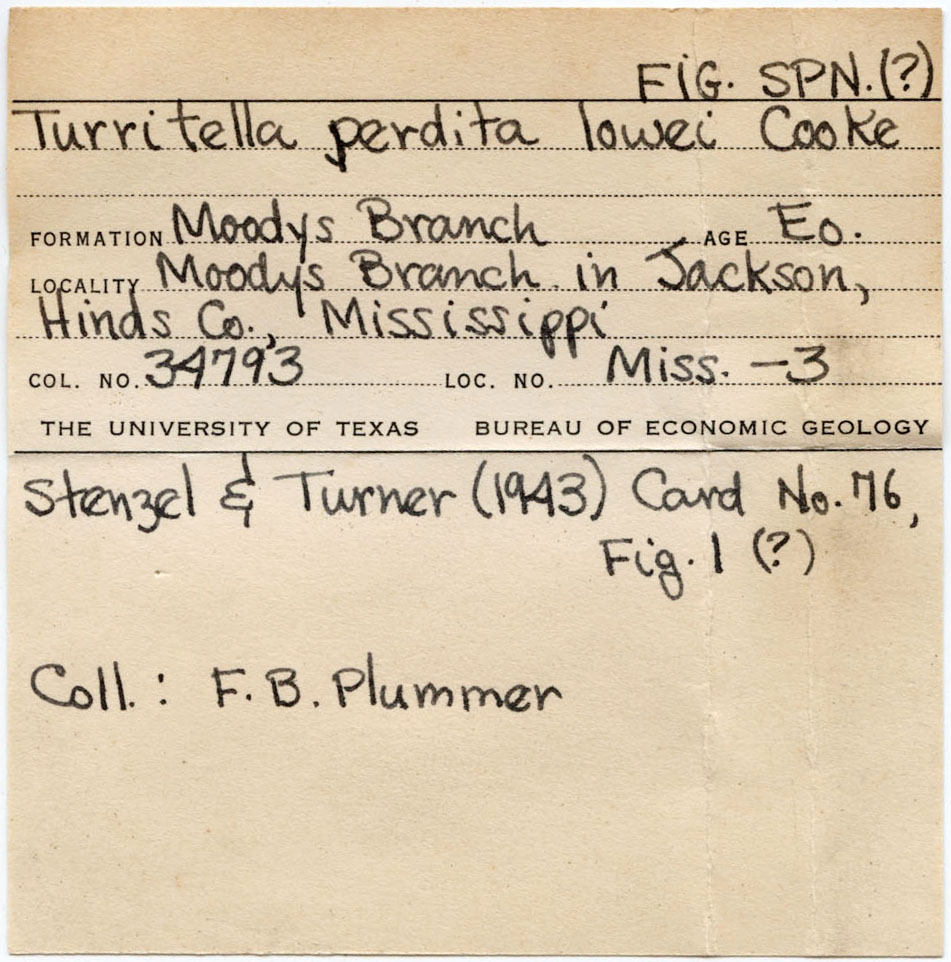 FIG. SPN. (?)
Turritella perdita lowei Cooke
FORMATION Moodys Branch AGE Eo.
LOCALITY Moody's Branch in Jackson,
Hinds Co., Mississippi
COL. NO. 34793 LOC. NO. Miss. -3
THE UNIVERSITY OF TEXAS BUREAU OF ECONOMIC GEOLOGY
Stenzel & Turner (1943) Card No. 76,
Fig. 1 (?)
Coll. : F. B. Plummer